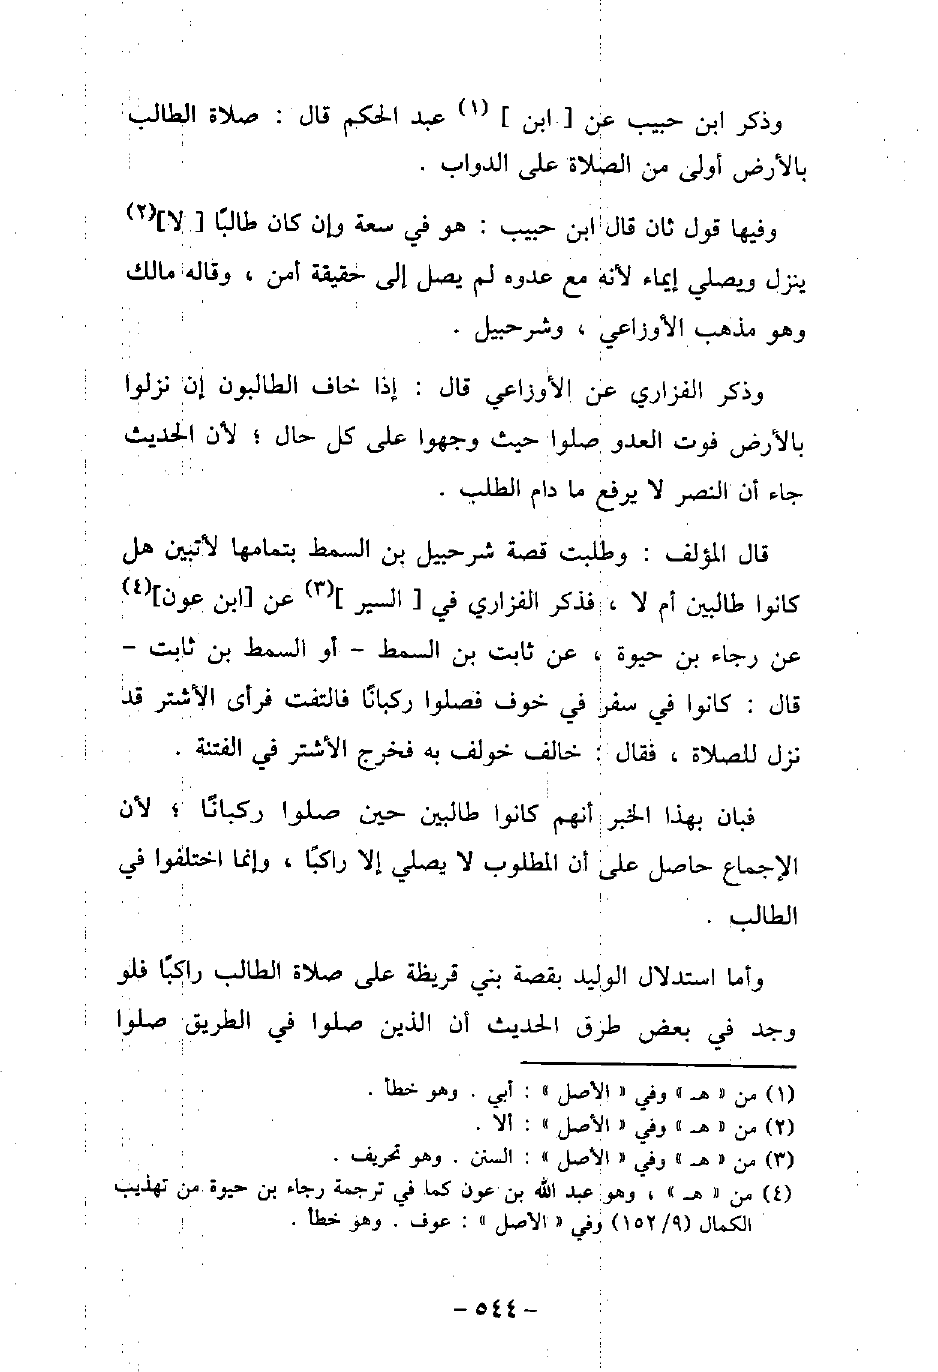 وذكر ابن حبيب عن [ ابن ] (١) عبد الحكم قال : صلاة الطالب
بالأرض أولى من الصلاة على الدواب .
وفيها قول ثان قال ابن حبيب : هو في سعة وإن كان طالبًا [ لا](٢)
ينزل ويصلي إيماء لأنه مع عدوه لم يصل إلى حقيقة أمن ، وقاله مالك
وهو مذهب الأوزاعي ، وشرحبيل .
وذكر الفزاري عن الأوزاعي قال : إذا خاف الطالبون إن نزلوا
بالأرض فوت العدو صلوا حيث وجهوا على كل حال ؛ لأن الحديث
جاء أن النصر لا يرفع ما دام الطلب .
قال المؤلف : وطلبت قصة شرحبيل بن السمط بتمامها لأتبين هل
كانوا طالبين أم لا ، فذكر الفزاري في [ السير ](٣) عن [ابن عون](٤)
عن رجاء بن حيوة ، عن ثابت بن السمط - أو السمط بن ثابت -
قال : كانوا في سفر في خوف فصلوا ركبانًا فالتفت فرأى الأشتر قد
نزل للصلاة ، فقال : خالف خولف به فخرج الأشتر في الفتنة .
فبان بهذا الخبر أنهم كانوا طالبين حين صلوا ركبانًا ؛ لأن
الإجماع حاصل على أن المطلوب لا يصلي إلا راكبًا ، وإنما اختلفوا في
الطالب .
وأما استدلال الوليد بقصة بني قريظة على صلاة الطالب راكبًا فلو
وجد في بعض طرق الحديث أن الذين صلوا في الطريق صلوا
(١) من « هـ » وفي « الأصل » : أبي . وهو خطأ .
(٢) من « هـ » وفي « الأصل » : ألا .
(٣) من « هـ » وفي « الأصل » : السنن . وهو تحريف .
(٤) من « هـ » ، وهو عبد الله بن عون كما في ترجمة رجاء بن حيوة من تهذيب
الكمال (٩/ ١٥٢) وفي « الأصل » : عوف . وهو خطأ .
- ٥٤٤ -